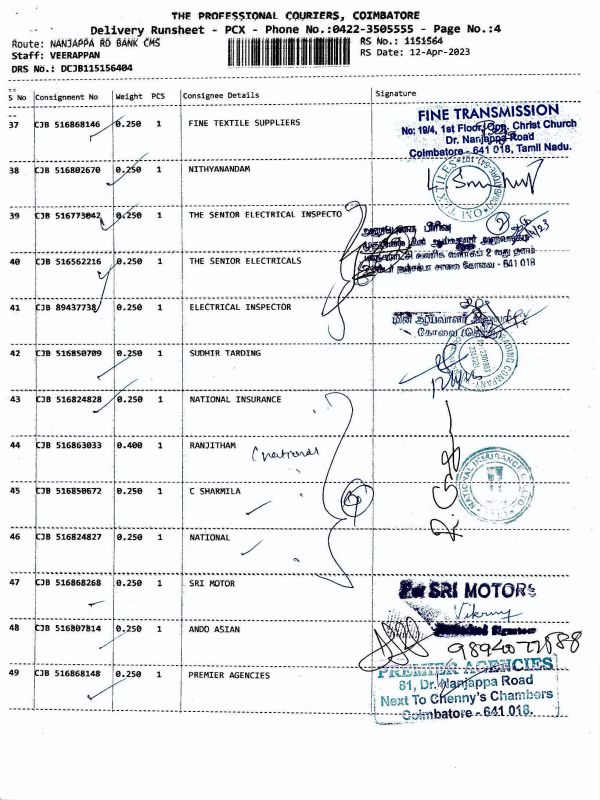 THE PROFESSIONAL COURIERS, COIMBATORE
Delivery Runsheet - PCX - Phone No.:0422-3505555 - Page No.:4
Route: NANJAPPA RD BANK CMS
RS No.: 1151564
Staff: VEERAPPAN
RS Date: 12-Apr-2023
DRS No.: DCJB115156404
S No Consignment No Weight PCS Consignee Details Signature
37 CJB 516868146 0.250 1 FINE TEXTILE SUPPLIERS
FINE TRANSMISSION
No: 19/4, 1st Floor, Opp. Christ Church
Dr. Nanjappa Road
Coimbatore - 641 018, Tamil Nadu.
38 CJB 516802670 0.250 1 NITHYANANDAM
39 CJB 516773042 0.250 1 THE SENIOR ELECTRICAL INSPECTO
40 CJB 516562216 0.250 1 THE SENIOR ELECTRICALS
கோவை - 641 018
41 CJB 89437738 0.250 1 ELECTRICAL INSPECTOR
மின் ஆய்வாளர்
கோவை
42 CJB 516850709 0.250 1 SUDHIR TARDING
43 CJB 516824828 0.250 1 NATIONAL INSURANCE
44 CJB 516863033 0.400 1 RANJITHAM
(national
45 CJB 516850672 0.250 1 C SHARMILA
NATIONAL INSURANCE CO. LTD
46 CJB 516824827 0.250 1 NATIONAL
47 CJB 516868268 0.250 1 SRI MOTOR
For SRI MOTORS
48 CJB 516807814 0.250 1 ANDO ASIAN
Authorised Signatory
49 CJB 516868148 0.250 1 PREMIER AGENCIES
PREMIER AGENCIES
81, Dr. Nanjappa Road
Next To Chenny's Chambers
Coimbatore - 641 018.